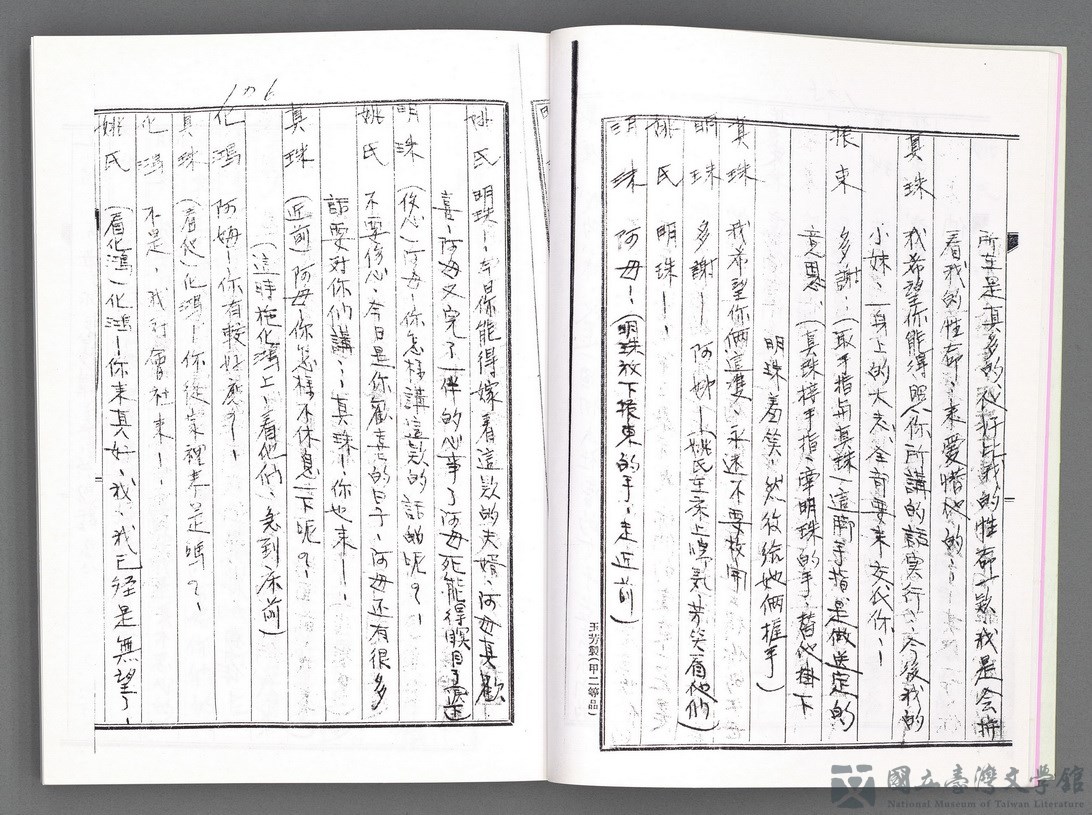 所在是真多的、我行比我的性命一款我是会將
看我的性命、來愛惜他的
真珠 我希望你能得照你所講的話実行、今後我的
小妹、一身上的大志、全部要來交代你、！
振東 多謝、（取手指与真珠）這腳手指是做送定的
意思、（真珠接手指、牽明珠的手、替他掛下
明珠羞笑、然後給她倆握手）
真珠 我希望你倆這双、永遠不要放開
明珠 多謝！阿姊！（姚氏在床上 微笑看他們）
姚氏 明珠！！
明珠 阿母！（明珠放下振東的手、走近前）
玉芳製（甲二等品）
106
姚氏 明珠！今日你能得嫁着這款的夫婿、阿母真歡
喜、阿母又完了一件的心事了阿母死能得瞑目了
明珠（傷心）阿母！你怎樣講這款的話的呢？！
姚氏 不要傷心、今日是你歡喜的日子、阿母还有很多
話要対你們講、真珠！你也來！！
真珠（近前）阿母！你怎樣不休息一下呢？！
（這時施化鴻上、看他們、急到床前）
化鴻 阿姆！你有較好應？！！
真珠（看他）化鴻！你從家裡來是嗎？！
化鴻 不是、我対會社來！！
姚氏（看化鴻）化鴻！你來真好、我、我已経是無望了！
國立臺灣文學館
National Museum of Taiwan Literature